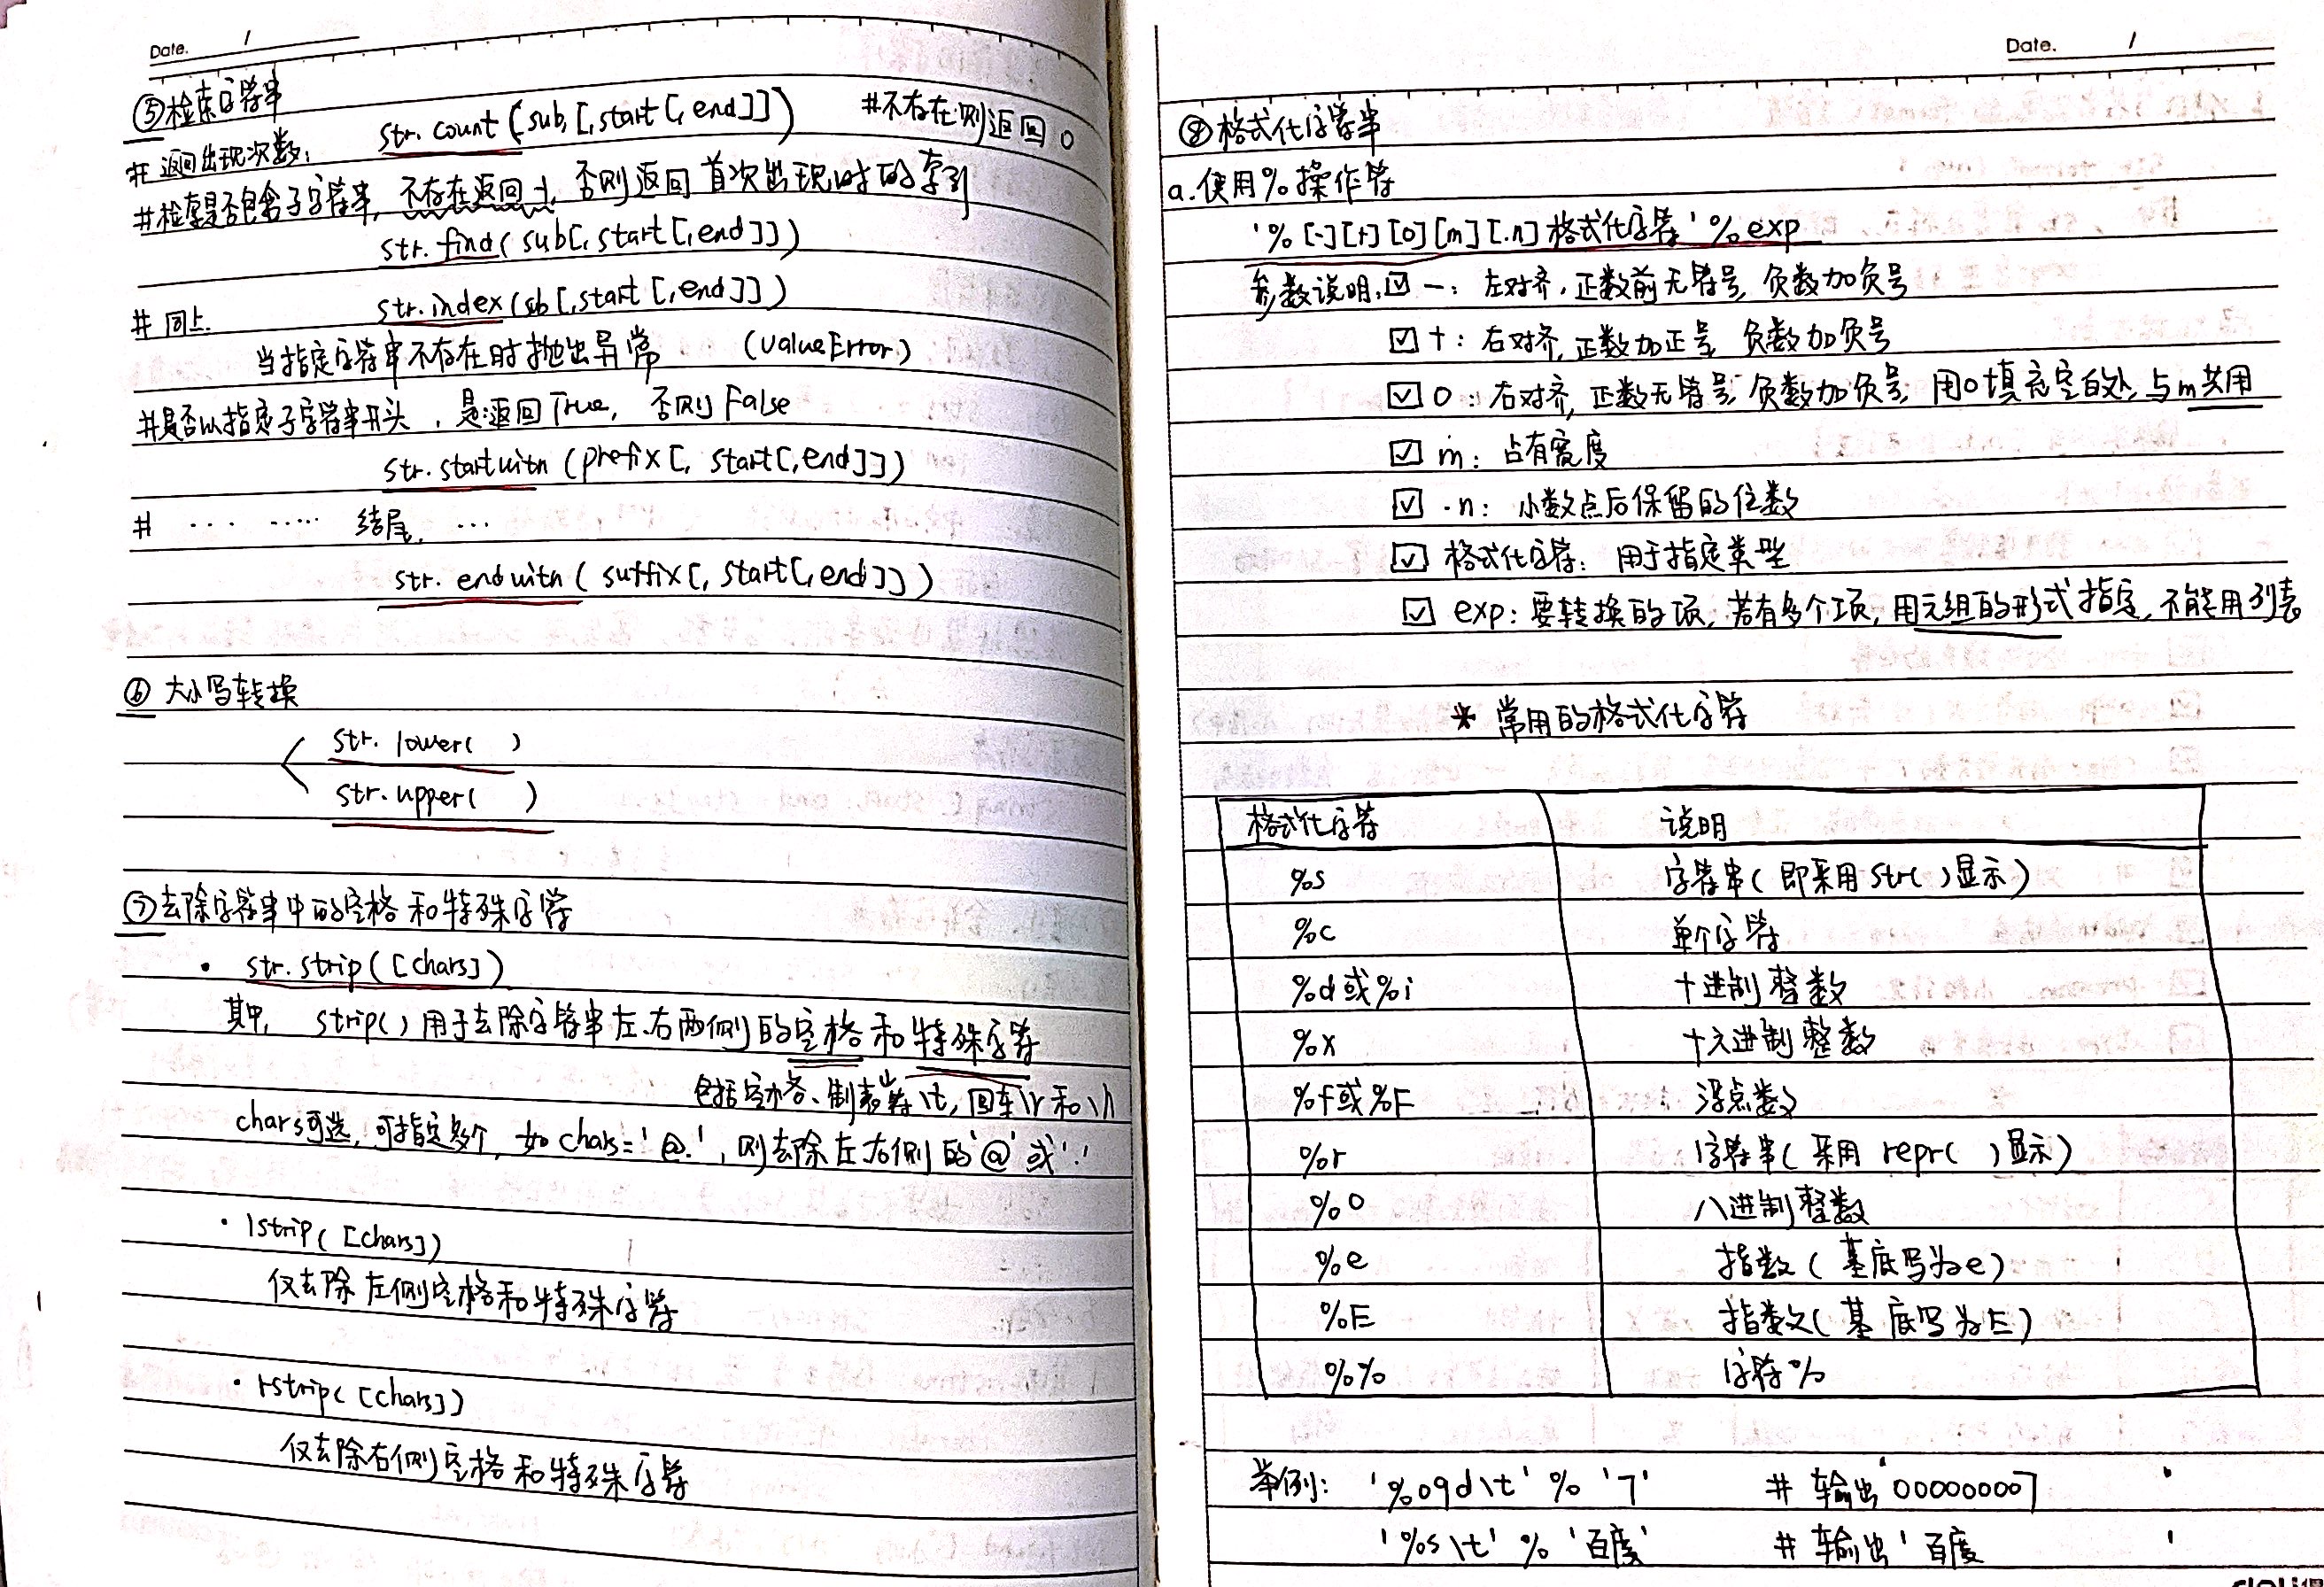 Date. /
⑤检索字符串
#返回出现次数: str.count(sub,[,start[,end]]) #不存在则返回0
#检索是否包含子字符串,不存在返回-1,否则返回首次出现时的索引
str.find(sub[,start[,end]])
#同上. str.index(sub[,start[,end]])
当指定字符串不存在时抛出异常 (ValueError)
#是否以指定子字符串开头,是返回True,否则False
str.startwith(prefix[,start[,end]])
# ... ..... 结尾, ...
str.endwith(suffix[,start[,end]])
⑥大小写转换
str.lower( )
str.upper( )
⑦去除字符串中的空格和特殊字符
· str.strip([chars])
其中, strip()用于去除字符串左、右两侧的空格和特殊字符
包括空格、制表符\t,回车\r和\n
chars可选,可指定多个,如chars='@.',则去除左右侧的'@'或'.'
· lstrip([chars])
仅去除左侧空格和特殊字符
· rstrip([chars])
仅去除右侧空格和特殊字符
Date. /
⑧格式化字符串
a.使用%操作符
'%[-][+][0][m][.n]格式化字符'%exp
参数说明:☑ -: 左对齐,正数前无符号,负数加负号
☑ +: 右对齐,正数加正号,负数加负号
☑ 0: 右对齐,正数无符号,负数加负号,用0填充空白处,与m共用
☑ m: 占有宽度
☑ .n: 小数点后保留的位数
☑ 格式化字符: 用于指定类型
☑ exp:要转换的项,若有多个项,用元组的形式指定,不能用列表
* 常用的格式化字符
格式化字符 说明
%s 字符串(即采用str()显示)
%c 单个字符
%d或%i 十进制整数
%x 十六进制整数
%f或%F 浮点数
%r 字符串(采用repr()显示)
%o 八进制整数
%e 指数(基底写为e)
%E 指数(基底写为E)
%% 字符%
举例: '%09d\t' % '7' #输出'000000007 '
'%s\t' % '百度' #输出'百度 '